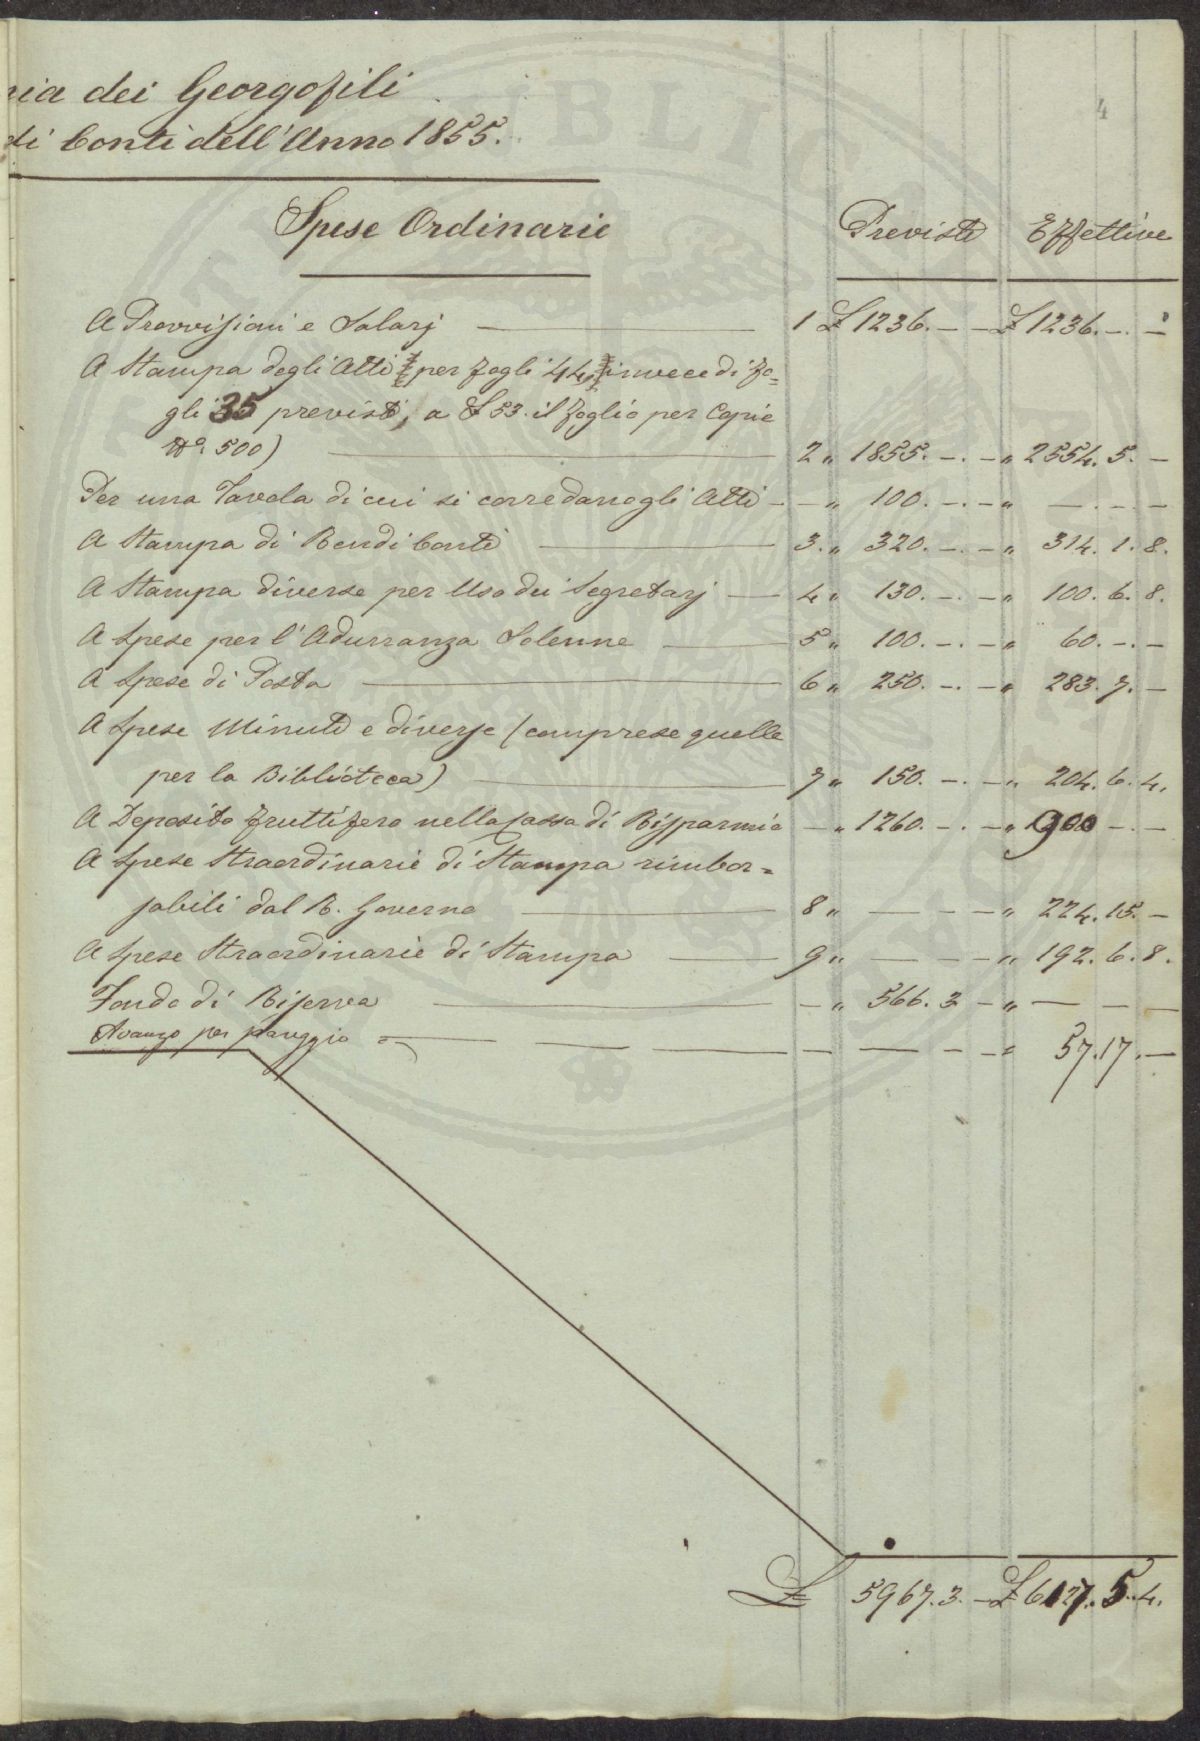 4
mia dei Georgofili
di Conti dell'Anno 1855.
Spese Ordinarie Previste Effettive
A Provvisioni e Salarj 1 £ 1236. — — £ 1236. — —
A Stampa degli Atti per fogli 44, invece di fo=
gli 35 previsti, a £ 53. il foglio per Copie
N°. 500) 2 „ 1855. — — „ 2554. 5. —
Per una Tavola di cui si corredano gli Atti — „ 100. — — „ — — —
A Stampa di Rendi Conti 3. „ 320. — — „ 314. 1. 8.
A Stampa diverse per Uso dei Segretarj 4 „ 130. — — „ 100. 6. 8.
A Spese per l'Adunanza Solenne 5 „ 100. — — „ 60. — —
A Spese di Posta 6 „ 250. — — „ 283. 7. —
A Spese Minute e diverse (comprese quelle
per la Biblioteca) 7 „ 150. — — „ 204. 6. 4.
A Deposito fruttifero nella Cassa di Risparmio — „ 1260. — — „ 900 — —
A Spese Straordinarie di Stampa rimbor=
sabili dal R. Governo 8 „ — — — „ 224. 15. —
A Spese Straordinarie di Stampa 9 „ — — — „ 192. 6. 8.
Fondo di Riserva — „ 566. 3 — „ — — —
Avanzo per pareggio — — — — „ 57. 17. —
£ 5967. 3. — £ 6127. 5. 4.